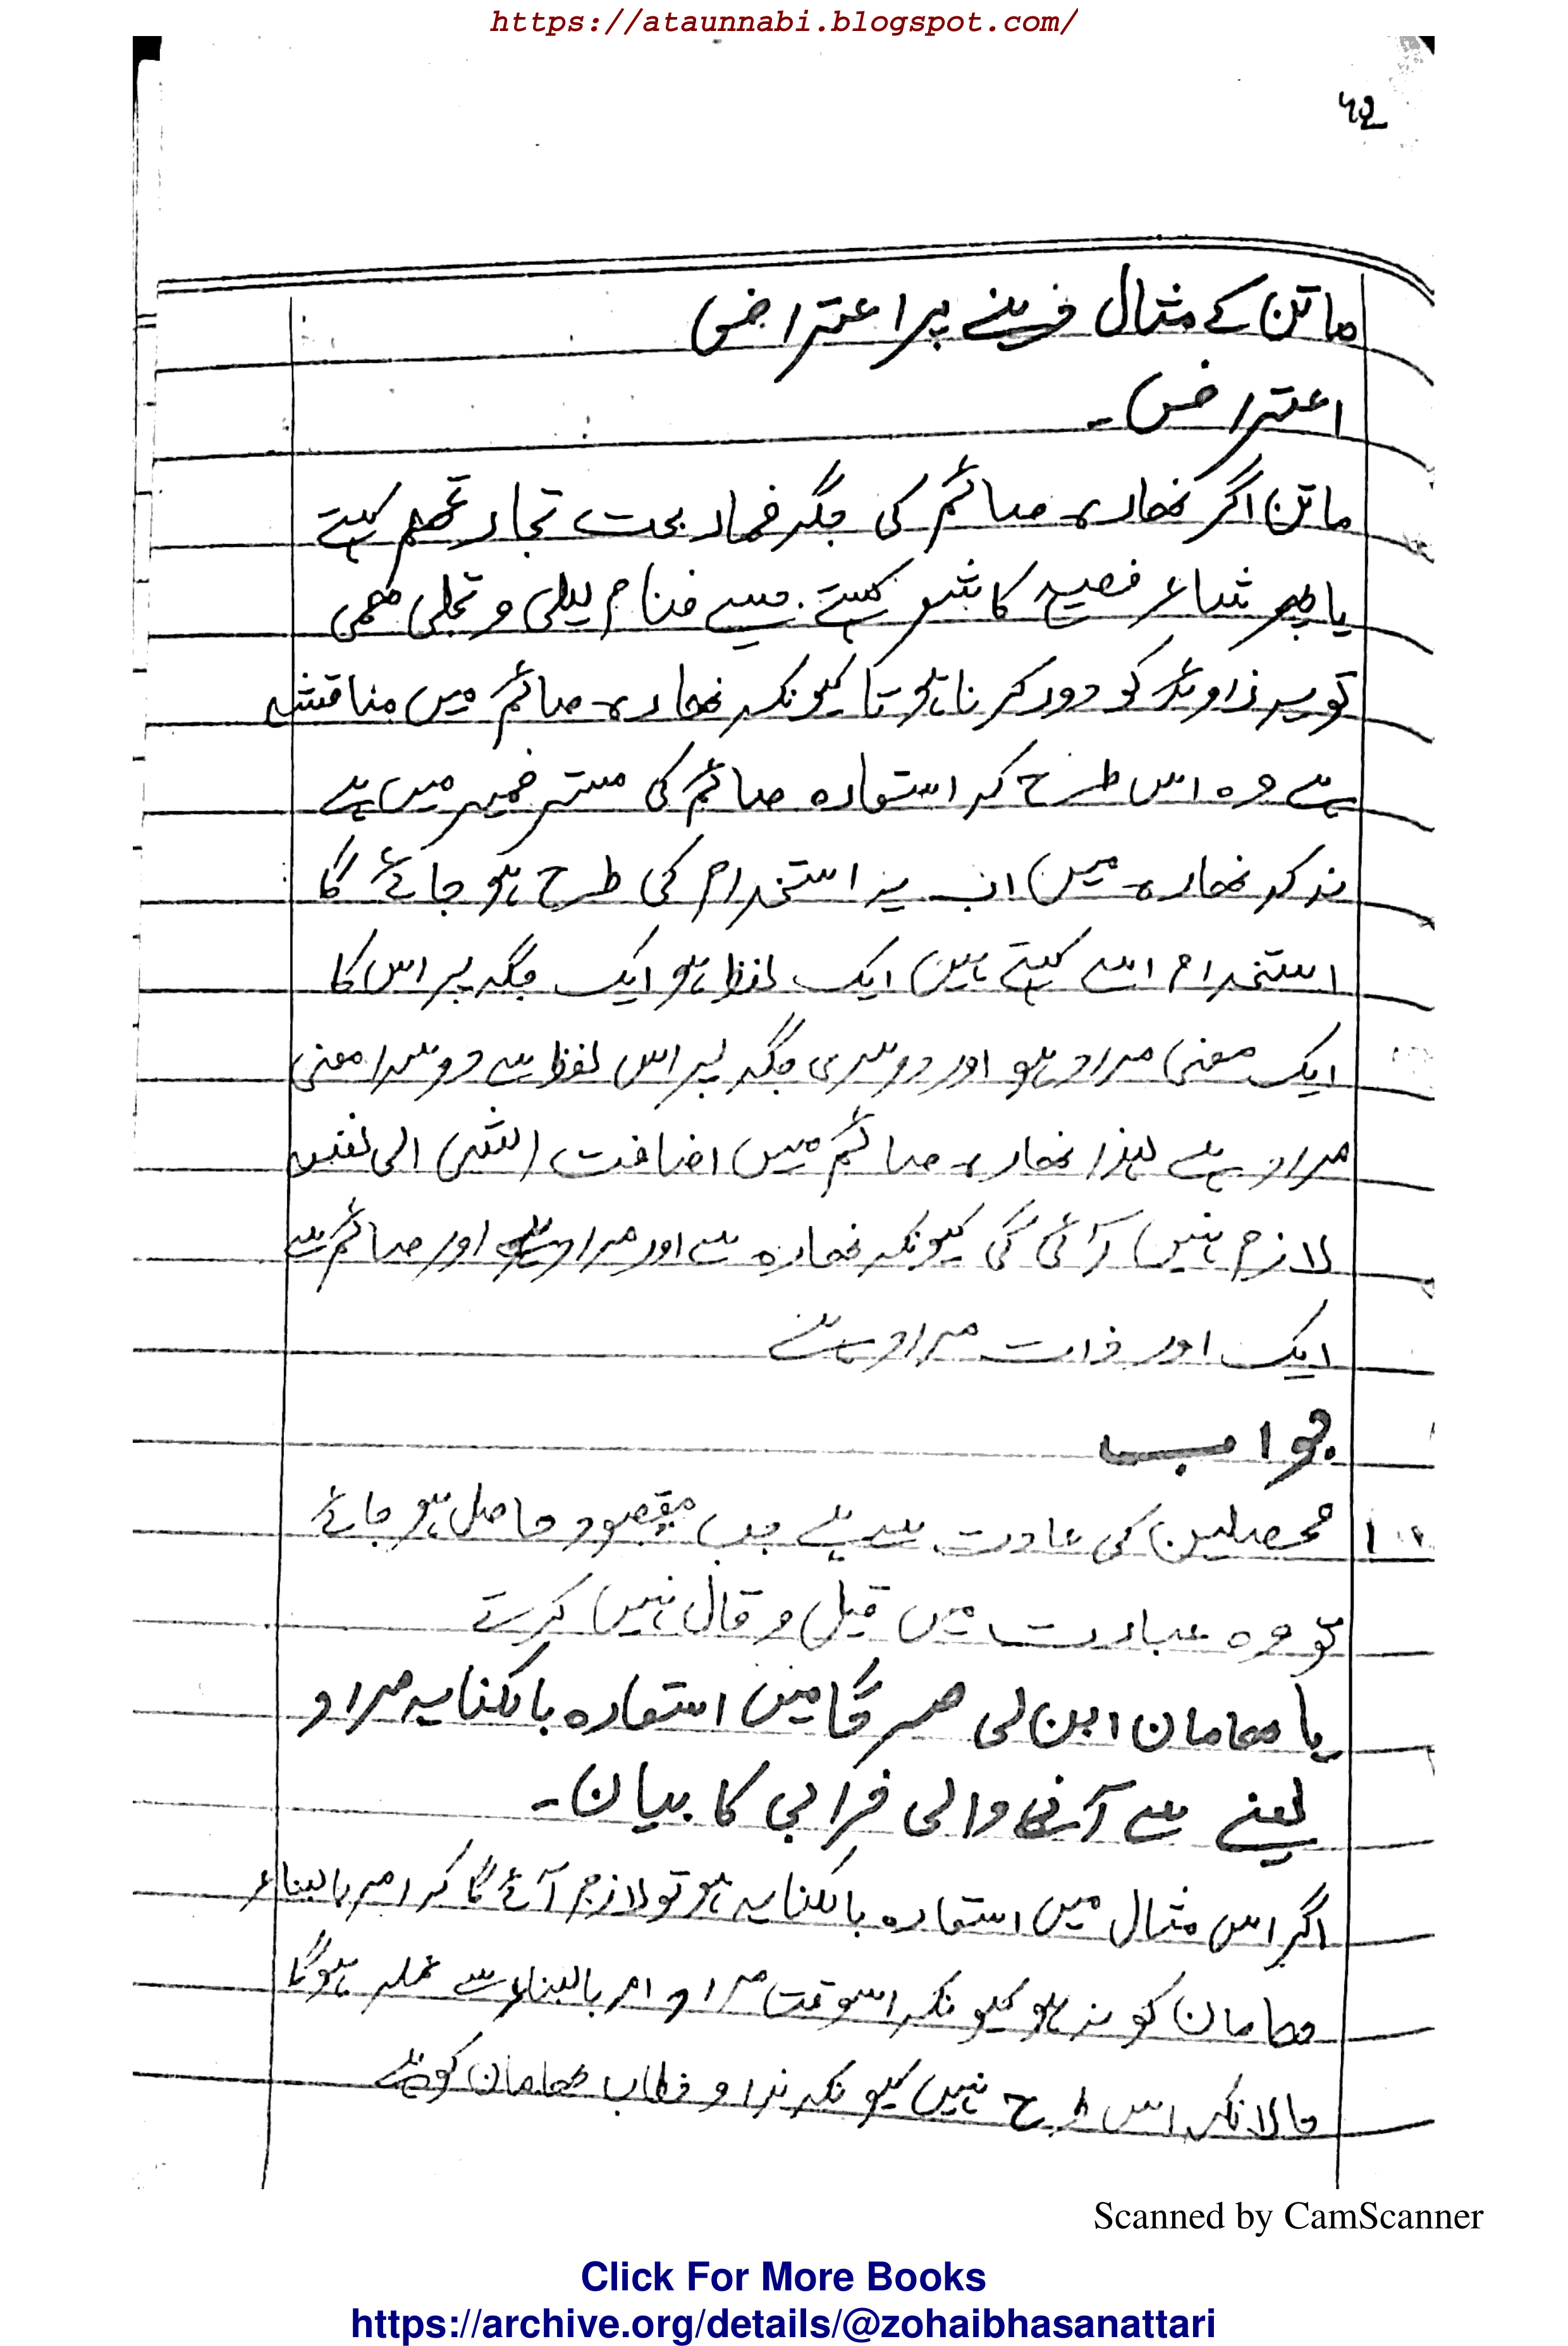 https://ataunnabi.blogspot.com/
ماتن کے مثال دینے پر اعتراض
اعتراض۔
ماتن اگر نھارہ صائم کی جگہ فما ربحت تجارتھم کہتے
یا پھر شاعر فصیح کا شعر کہتے جیسے فنام لیلی و تجلی ھمی
تو یہ کو دور کرنا ہوتا کیونکہ نھارہ صائم میں مناقشہ
ہے وہ اس طرح کہ استعارہ صائم کی مستتر ضمیر میں ہے
نہ کہ نھارہ میں اب یہ استخدام کی طرح ہو جائے گا
استخدام اسے کہتے ہیں ایک لفظ ہو ایک جگہ پر اس کا
ایک معنی مراد ہو اور دوسری جگہ پر اس لفظ سے دوسرا معنی
مراد ہے لہذا نھارہ صائم میں اضافت الشئ الی نفسہ
لازم نہیں آئی گی کیونکہ نھارہ سے اور مراد ہے اور صائم سے
ایک اور ذات مراد ہے
جواب
محصلین کی عادت سے ہے جب مقصود حاصل ہو جائے
تو وہ عبارت میں قیل و قال نہیں کرتے
یا ھامان ابن لی صرحا میں استعارہ بالکنایہ مراد
لینے سے آنے والی خرابی کا بیان۔
اگر اس مثال میں استعارہ بالکنایہ ہو تو لازم آئے گا کہ امر بالبناء
ھامان کو نہ ہو کیونکہ اسوقت مراد امر بالبناء سے عملہ ہوگا
حالانکہ اس طرح نہیں کیونکہ ندا و خطاب ھامان کو ہے
Scanned by CamScanner
Click For More Books
https://archive.org/details/@zohaibhasanattari